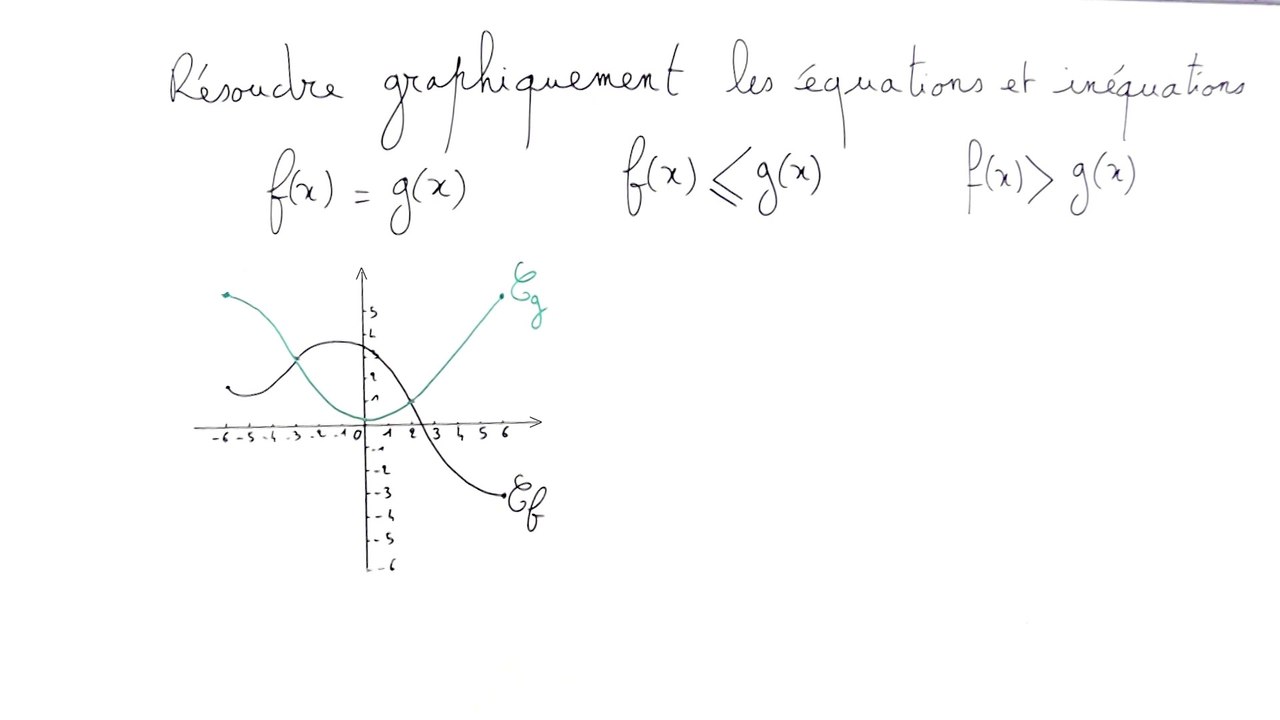 Résoudre graphiquement les équations et inéquations
f(x) = g(x) f(x) ⩽ g(x) f(x) > g(x)
𝒞g
5
4
3
2
1
-6 -5 -4 -3 -2 -1 0 1 2 3 4 5 6
-1
-2
-3
𝒞f
-4
-5
-6